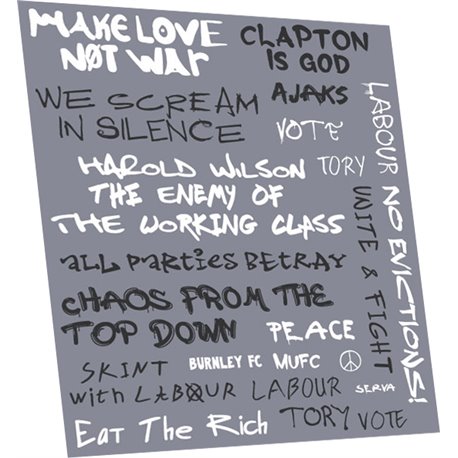 MAKE LOVE
NOT WAR
CLAPTON
IS GOD
AJAKS
WE SCREAM
IN SILENCE
VOTE
TORY
HAROLD WILSON
THE ENEMY OF
THE WORKING CLASS
LABOUR
NO EVICTIONS!
UNITE & FIGHT
all PARTIES BETRAY
CHAOS FROM THE
TOP DOWN
PEACE
SKINT
BURNLEY FC
MUFC
with LABOUR
LABOUR
SERVA
Eat The Rich
TORY
VOTE